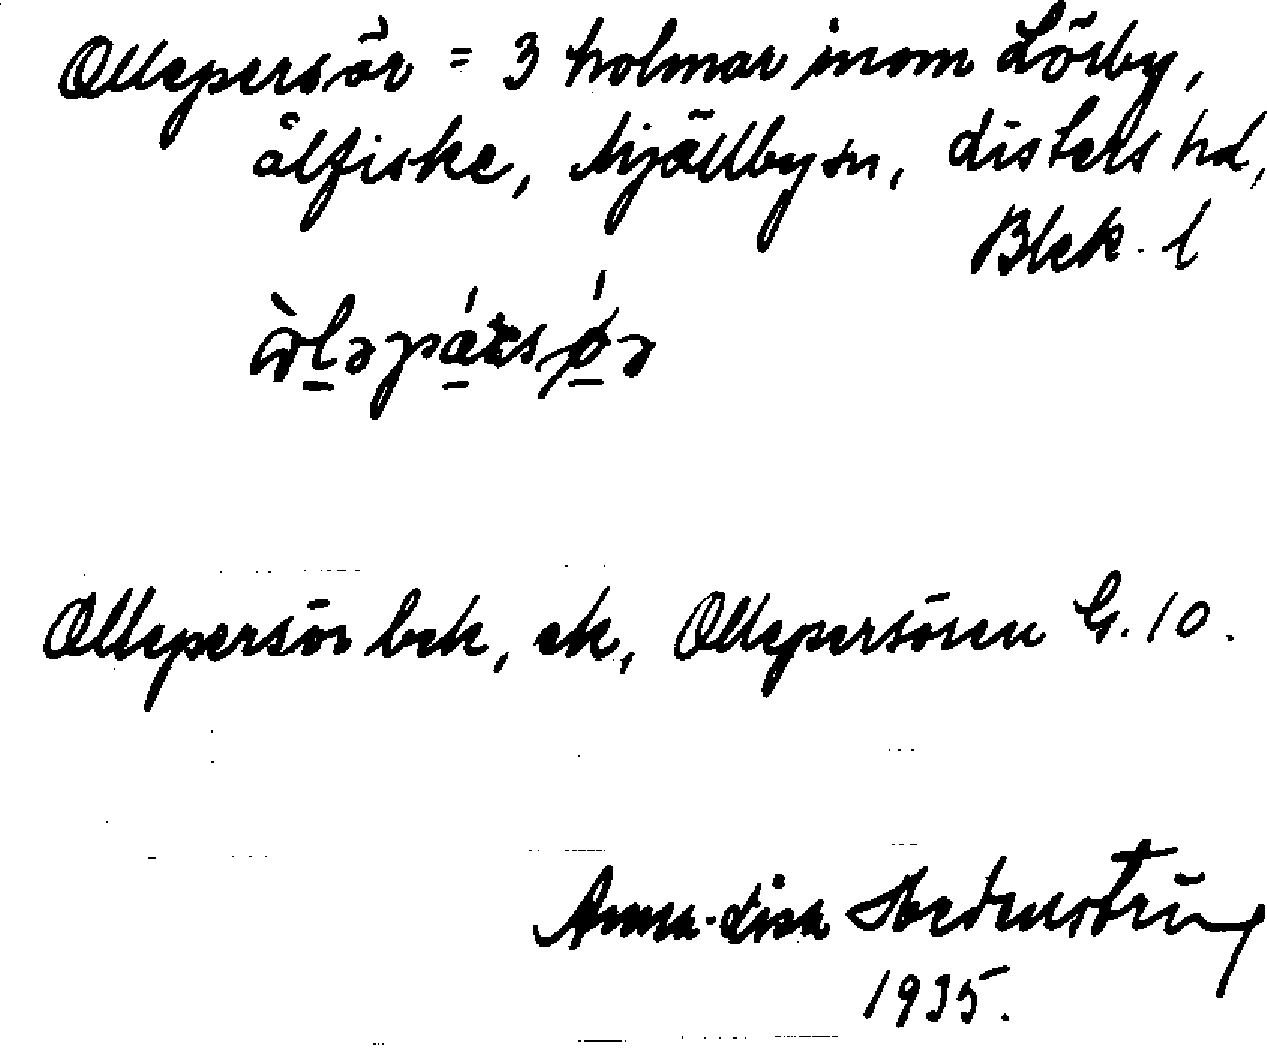 Ollepersör = 3 holmar inom Lörby,
ålfiske, Mjällby sn, Listers hd,
Blek. l
Ollepersör bek, ek, Ollepersören G. 10.
Anna-Lisa
1935.